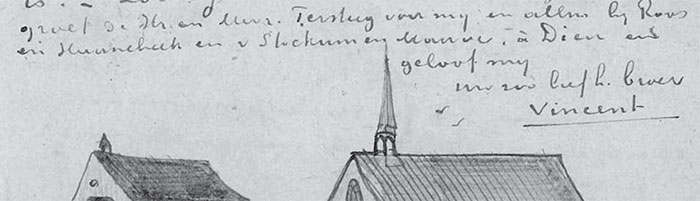 groet de Hr. en Mevr. Tersteeg voor my en allen by Roos
en Haanebeek en v Stockum en Mauve, à Dieu en
geloof my
uw zoo liefh. broer
Vincent